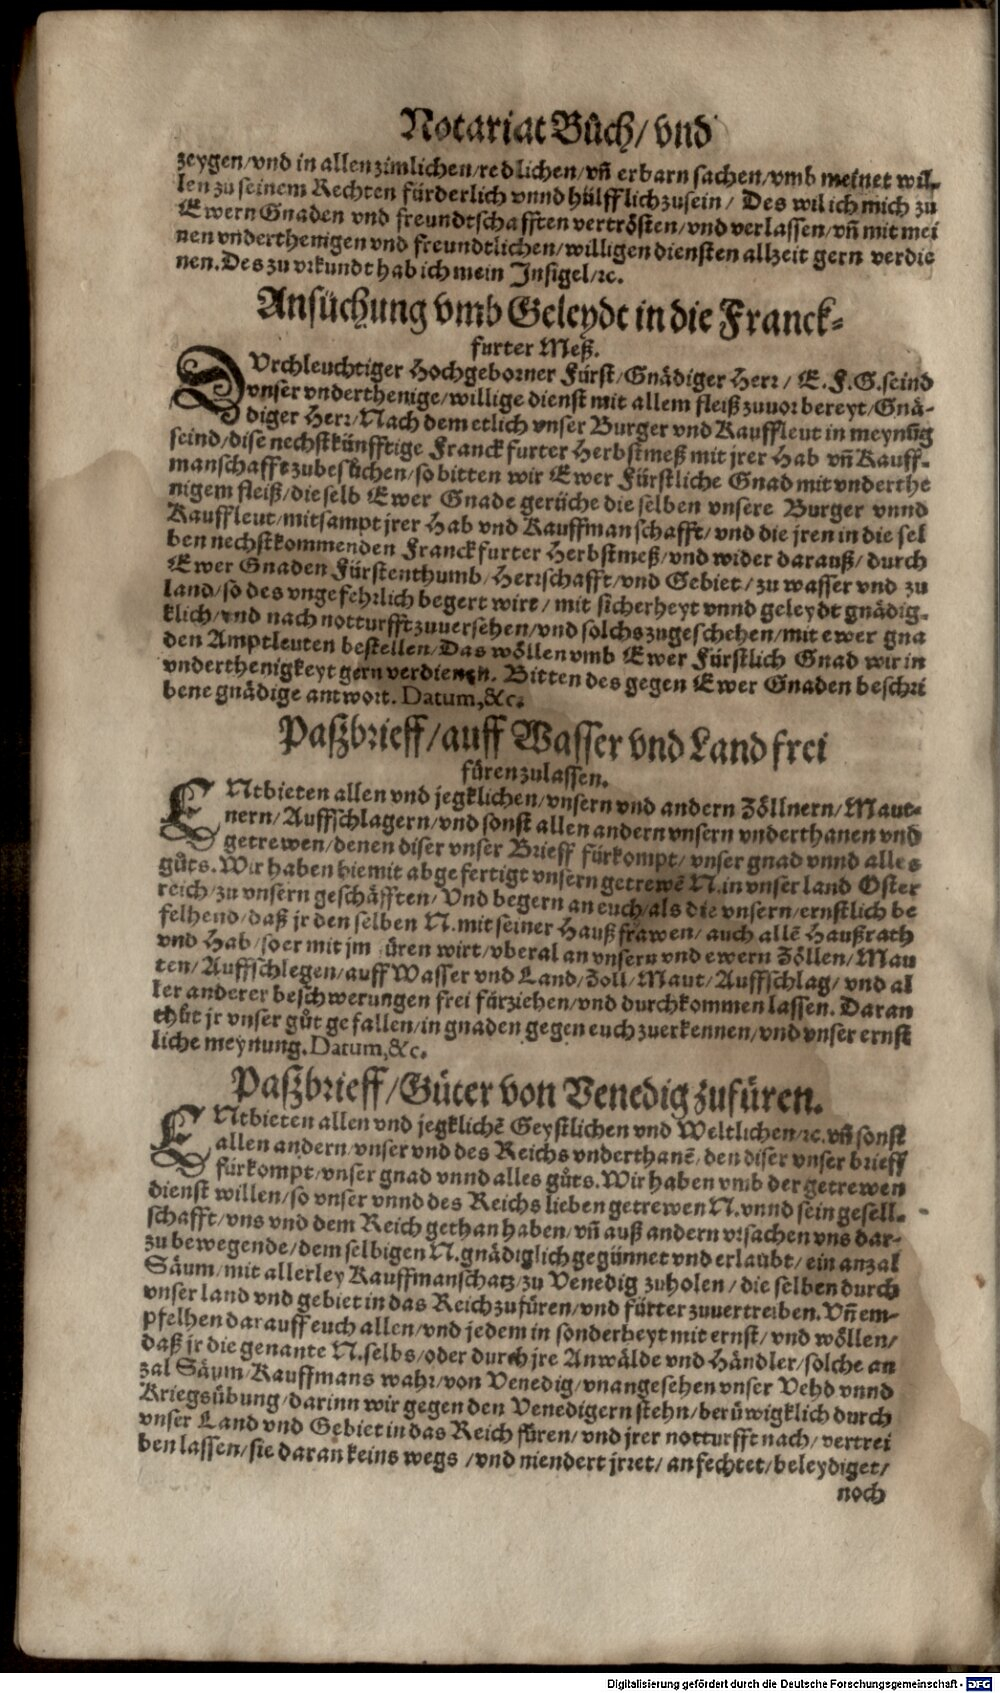 Notariat Bůch/ vnd
zeygen/vnd in allen zimlichen/redlichen/vñ erbarn sachen/vmb meinet wil-
len zu seinem Rechten fürderlich vnnd hülfflich zusein/ Des wil ich mich zu
Ewern Gnaden vnd freundtschafften vertrösten/vnd verlassen/vñ mit mei
nen vnderthenigen vnd freundtlichen/willigen diensten allzeit gern verdie
nen. Des zu vrkundt hab ich mein Insigel/ꝛc.
Ansůchung vmb Geleydt in die Franck-
furter Meß.
DVrchleuchtiger Hochgeborner Fürst/Gnädiger Herr/ E.F.G. seind
vnser vnderthenige/willige dienst mit allem fleiß zuuor bereyt/Gnä-
diger Herr/Nach dem etlich vnser Burger vnd Kauffleut in meynũg
seind/dise nechstkünfftige Franckfurter Herbstmeß mit jrer Hab vñ Kauff-
manschafft zubesůchen/so bitten wir Ewer Fürstliche Gnad mit vnderthe
nigem fleiß/die selb Ewer Gnade gerůche die selben vnsere Burger vnnd
Kauffleut/mitsampt jrer Hab vnd Kauffmanschafft/vnd die jren in die sel
ben nechstkommenden Franckfurter Herbstmeß/vnd wider darauß/durch
Ewer Gnaden Fürstenthumb/Herrschafft/vnd Gebiet/zu wasser vnd zu
land/so des vngefehrlich begert wirt/ mit sicherheyt vnnd geleydt gnädig-
klich/vnd nach notturfft zuuersehen/vnd solchs zugeschehen/mit ewer gna
den Amptleuten bestellen/Das wöllen vmb Ewer Fürstlich Gnad wir in
vnderthenigkeyt gern verdienen. Bitten des gegen Ewer Gnaden beschri
bene gnädige antwort. Datum,&c.
Paßbrieff/auff Wasser vnd Land frei
fürenzulassen.
ENtbieten allen vnd jegklichen/vnsern vnd andern Zöllnern/Maut-
nern/Auffschlagern/vnd sonst allen andern vnsern vnderthanen vnd
getrewen/denen diser vnser Brieff fürkompt/vnser gnad vnnd alles
gůts. Wir haben hiemit abgefertigt vnsern getrewẽ N. in vnser land Oster
reich/zu vnsern geschäfften/Vnd begern an euch/als die vnsern/ernstlich be
felhend/daß jr den selben N. mit seiner Haußfrawen/auch allẽ Haußrath
vnd Hab/so er mit jm üren wirt/vberal an vnsern vnd ewern Zöllen/Mau
ten/Auffschlegen/auff Wasser vnd Land/Zoll/Maut/Auffschlag/vnd al
ler anderer beschwerungen frei fürziehen/vnd durchkommen lassen. Daran
thůt jr vnser gůt gefallen/in gnaden gegen euch zuerkennen/vnd vnser ernst
liche meynung. Datum,&c.
Paßbrieff/Güter von Venedig zufüren.
ENtbieten allen vnd jegklichẽ Geystlichen vnd Weltlichen/ꝛc. vñ sonst
allen andern/vnser vnd des Reichs vnderthanẽ/den diser vnser brieff
fürkompt/vnser gnad vnnd alles gůts. Wir haben vmb der getrewen
dienst willen/so vnser vnnd des Reichs lieben getrewen N. vnnd sein gesell-
schafft/vns vnd dem Reich gethan haben/vñ auß andern vrsachen vns dar-
zu bewegende/dem selbigen N. gnädiglich gegünnet vnd erlaubt/ein anzal
Säum/mit allerley Kauffmanschatz/zu Venedig zuholen/die selben durch
vnser land vnd gebiet in das Reich zufüren/vnd fürter zuuertreiben. Vñ em-
pfelhen darauff euch allen/vnd jedem in sonderheyt mit ernst/vnd wöllen/
daß jr die genante N. selbs/oder durch jre Anwälde vnd Händler/solche an
zal Säum/Kauffmans wahr/von Venedig/vnangesehen vnser Vehd vnnd
Kriegsübung/darinn wir gegen den Venedigern stehn/berüwigklich durch
vnser Land vnd Gebiet in das Reich füren/vnd jrer notturfft nach/vertrei
ben lassen/sie daran keins wegs/vnd niendert jrret/anfechtet/beleydiget/
noch
Digitalisierung gefördert durch die Deutsche Forschungsgemeinschaft - DFG